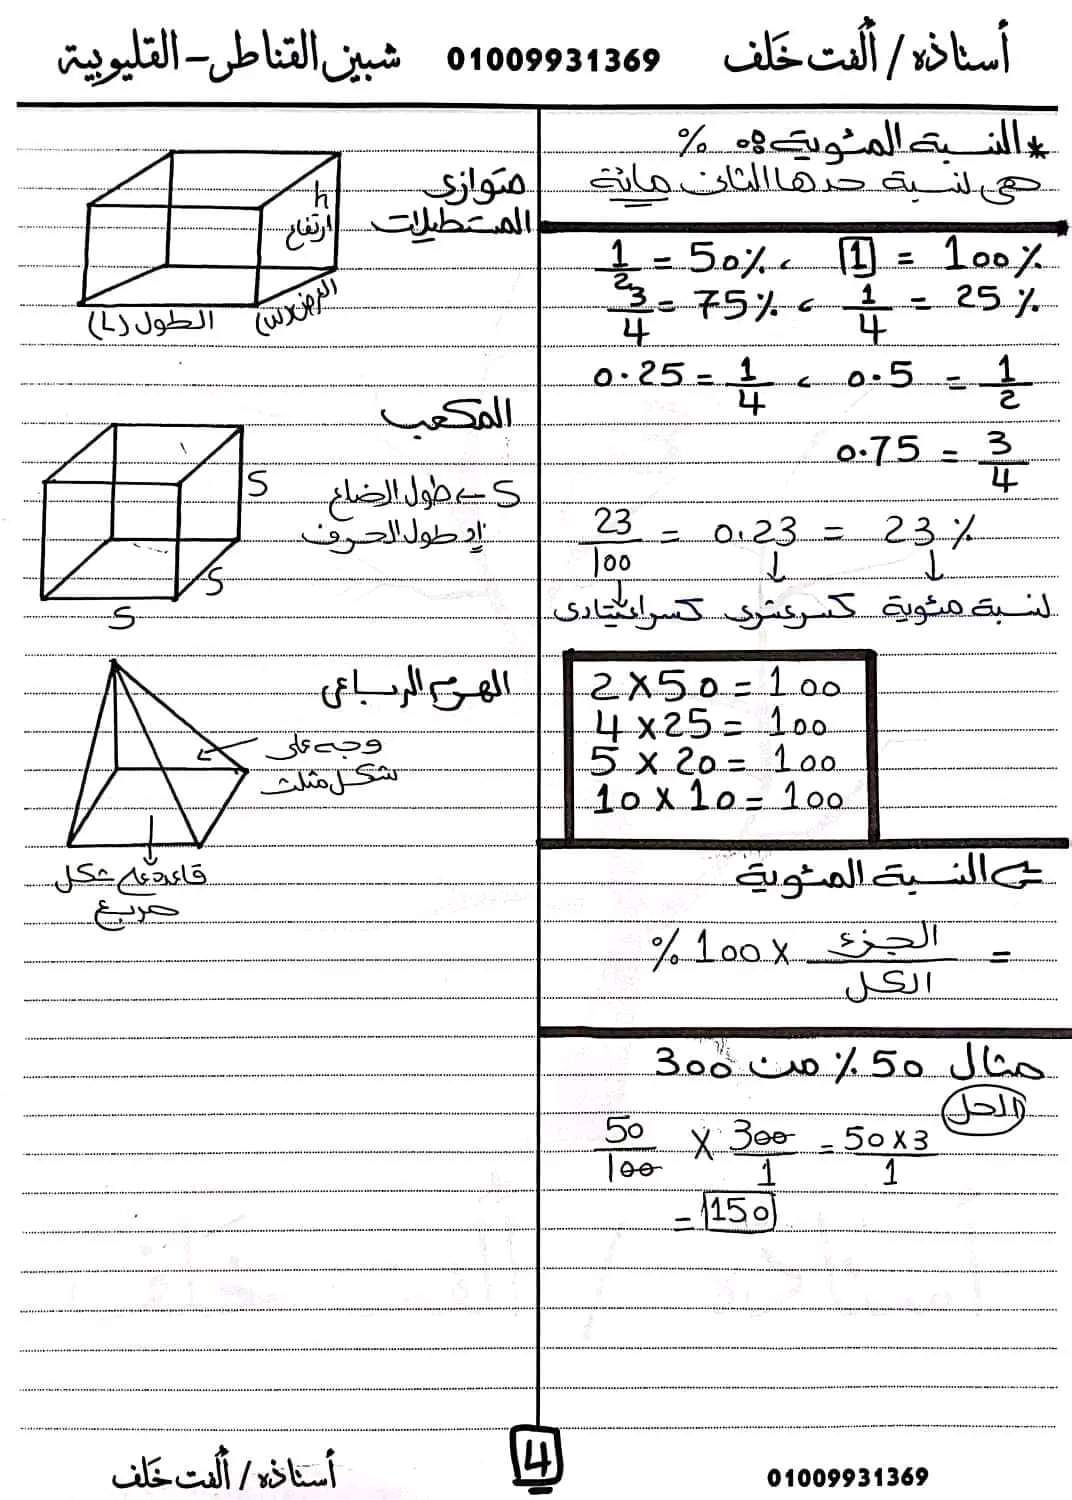 أستاذه / ألفت خَلف 01009931369 شبين القناطر - القليوبية
* النسبة المئوية :- %
هى نسبة حدها الثانى مائة
1 = 100% ، 1/2 = 50%
1/4 = 25% ، 3/4 = 75%
1/2 = 0.5 ، 1/4 = 0.25
3/4 = 0.75
23% = 0.23 = 23/100
نسبة مئوية كسر عشرى كسر اعتيادى
2 × 50 = 100
4 × 25 = 100
5 × 20 = 100
10 × 10 = 100
النسبة المئوية
= الجزء / الكل × 100 %
مثال 50% من 300
الحل
50/100 × 300/1 = 50×3/1
= 150
متوازى
المستطيلات
h
ارتفاع
العرض (w)
الطول (L)
المكعب
S ← طول الضلع
او طول الحرف
S
S
S
الهرم الرباعى
وجه على
شكل مثلث
قاعدة على شكل
مربع
4
أستاذه / ألفت خَلف
01009931369